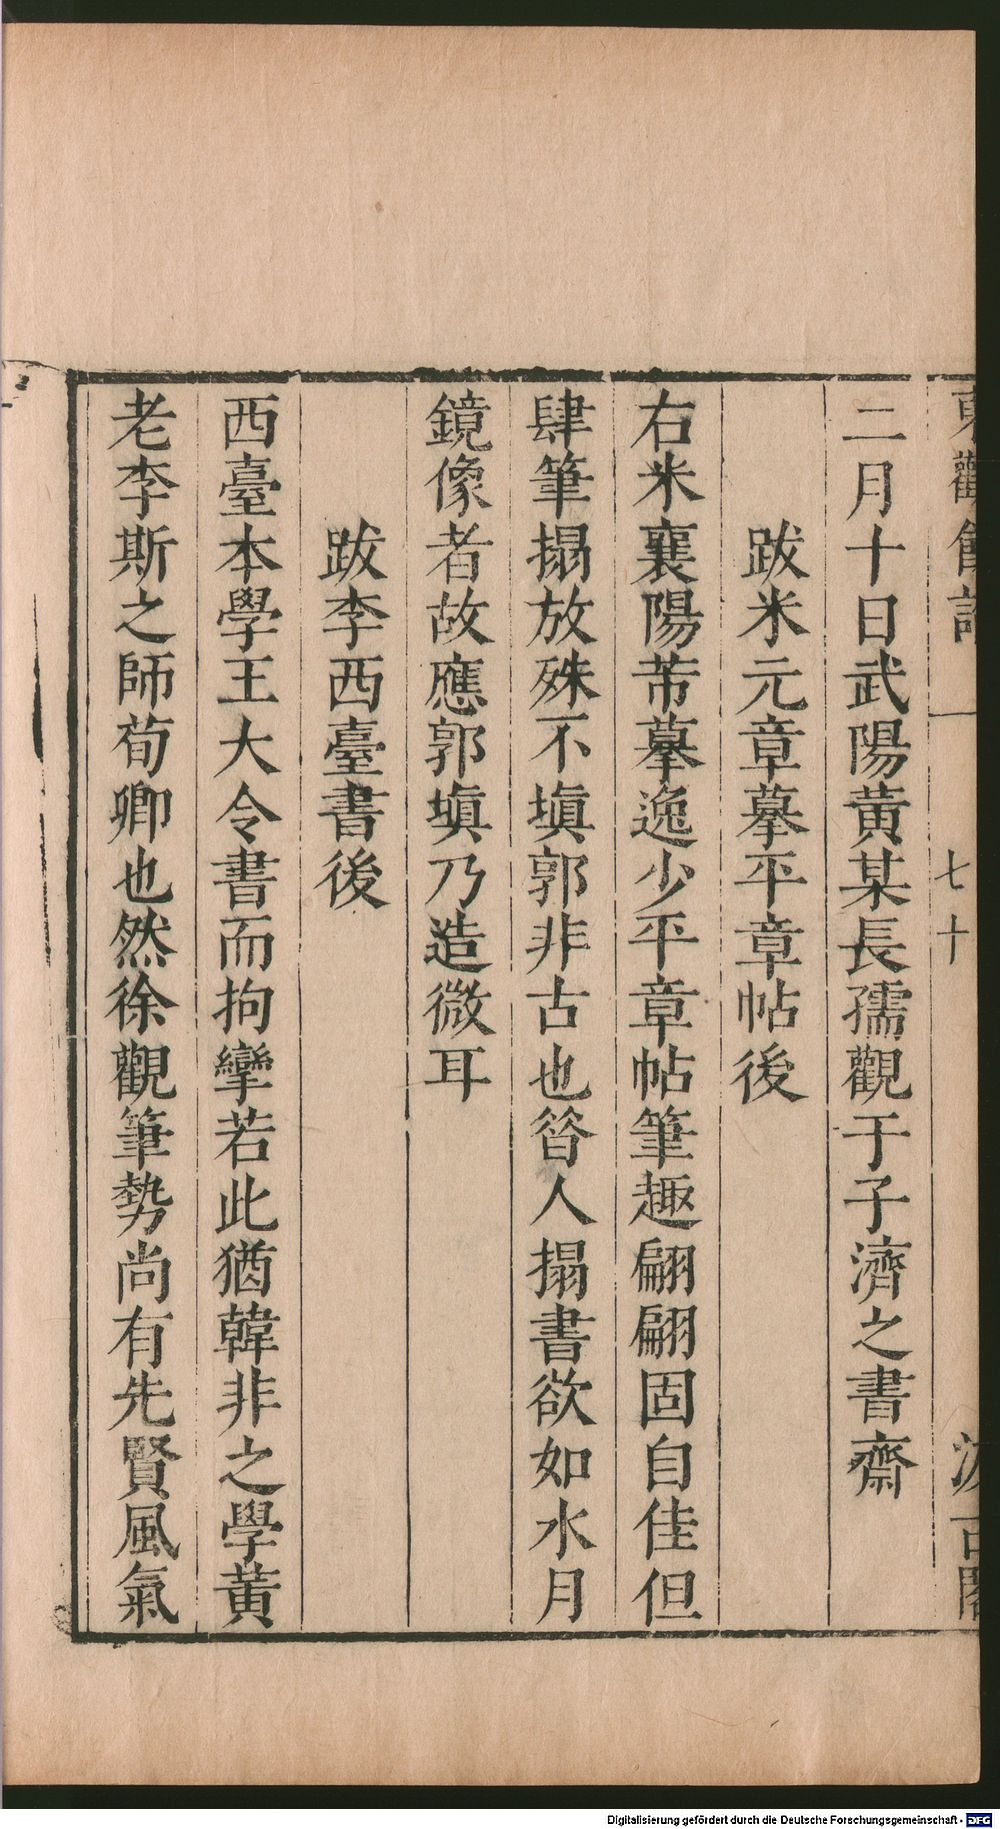 東觀餘論 一 七十 汲古閣
二月十日武陽黃某長孺觀于子濟之書齋
跋米元章摹平章帖後
右米襄陽芾摹逸少平章帖筆趣翩翩固自佳但
肆筆搨放殊不塡郭非古也昝人搨書欲如水月
鏡像者故應郭塡乃造微耳
跋李西臺書後
西臺本學王大令書而拘攣若此猶韓非之學黃
老李斯之師荀卿也然徐觀筆勢尚有先賢風氣
Digitalisierung gefördert durch die Deutsche Forschungsgemeinschaft - DFG